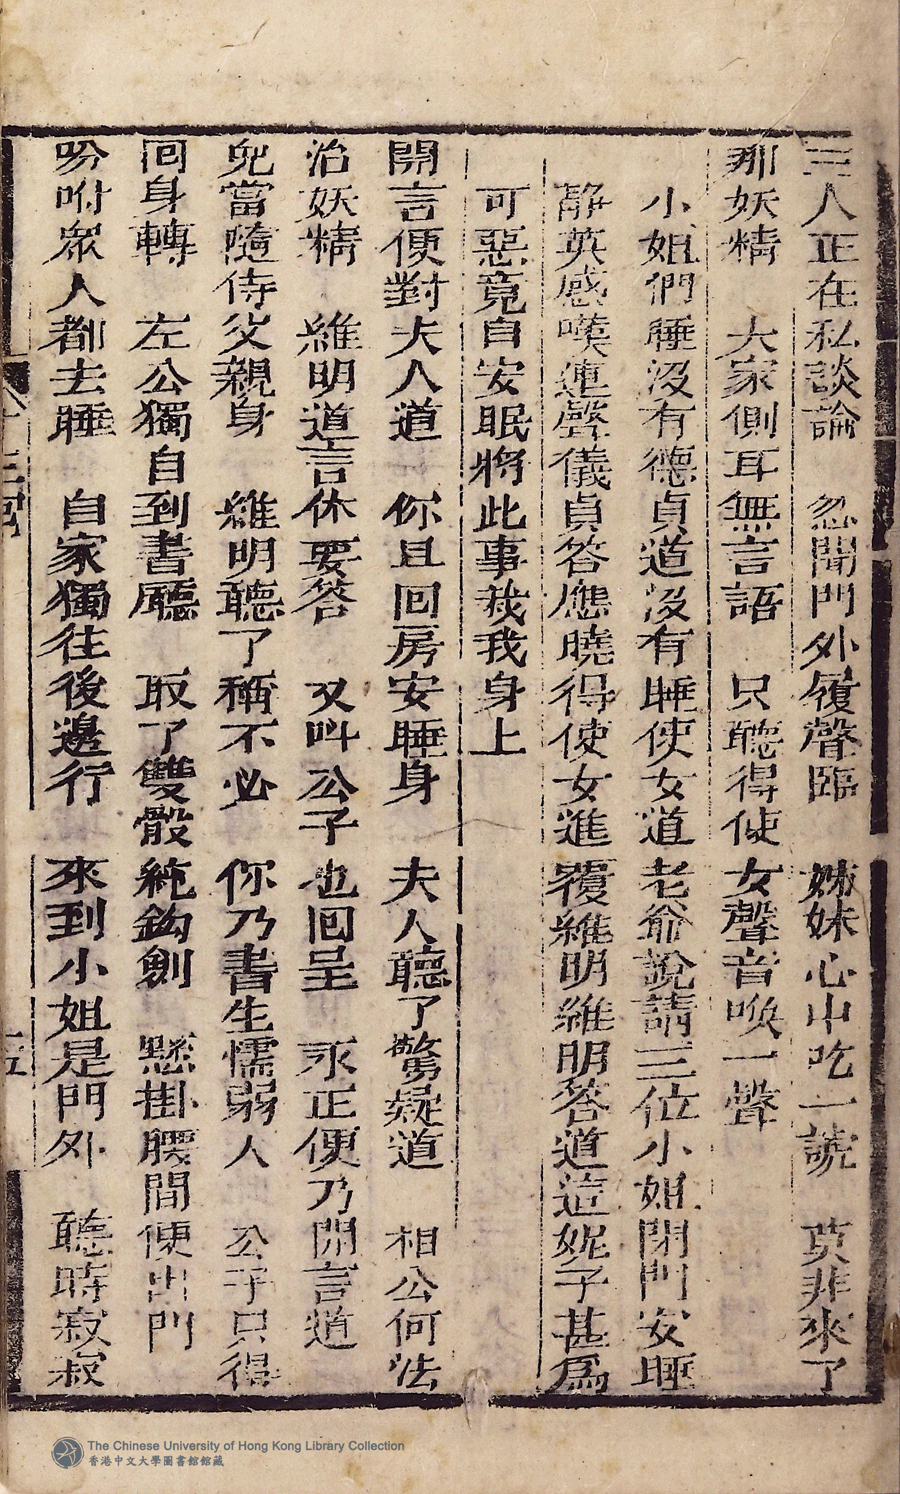 三人正在私談論　忽聞門外履聲臨　姊妹心中吃一諕　莫非來了
那妖精　大家側耳無言語　只聽得使女聲音喚一聲
小姐們睡沒有德貞道沒有睡使女道老爺說請三位小姐閉門安睡
靜英感嘆連聲儀貞答應曉得使女進覆維明維明答道這妮子甚爲
可惡竟自安眠將此事栽我身上
開言便對夫人道　你且回房安睡身　夫人聽了驚疑道　相公何法
治妖精　維明道言休要答　又叫公子也回呈　永正便乃開言道
兒當隨侍父親身　維明聽了稱不必　你乃書生懦弱人　公子只得
回身轉　左公獨自到書廳　取了雙骰純鈎劍　懸掛腰間便出門
吩咐衆人都去睡　自家獨往後邊行　來到小姐是門外　聽時寂寂
The Chinese University of Hong Kong Library Collection
香港中文大學圖書館館藏